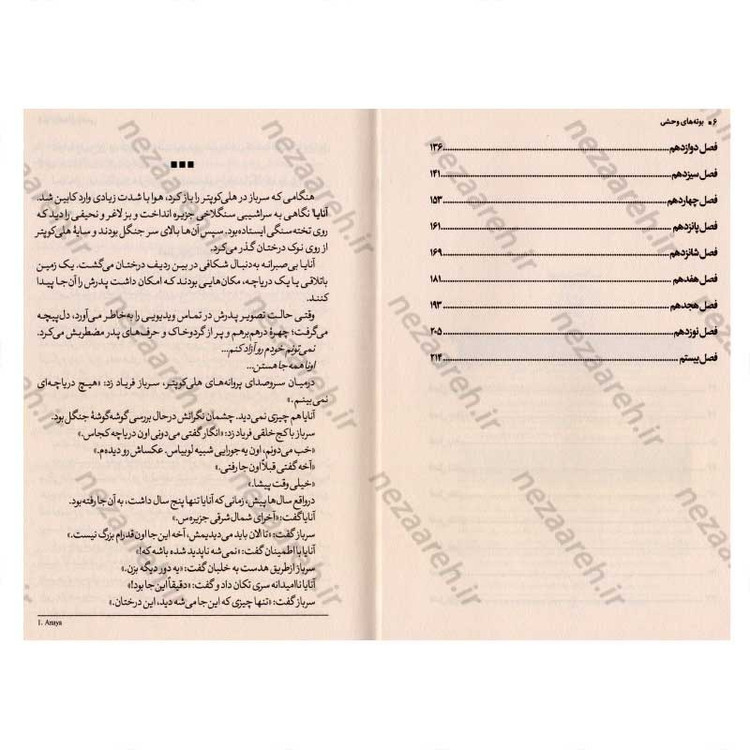 ۶ ▪ بوته‌های وحشی
فصل دوازدهم ........ ۱۳۶
فصل سیزدهم ........ ۱۴۱
فصل چهاردهم ........ ۱۵۳
فصل پانزدهم ........ ۱۶۱
فصل شانزدهم ........ ۱۶۹
فصل هفدهم ........ ۱۸۱
فصل هجدهم ........ ۱۹۳
فصل نوزدهم ........ ۲۰۵
فصل بیستم ........ ۲۱۴
هنگامی که سرباز در هلی‌کوپتر را باز کرد، هوا با شدت زیادی وارد کابین شد.
آنایا نگاهی به سراشیبی سنگلاخی جزیره انداخت و بز لاغر و نحیفی را دید که
روی تخته‌سنگی ایستاده بود. سپس آن‌ها بالای سر جنگل بودند و سایهٔ هلی‌کوپتر
از روی نوک درختان گذر می‌کرد.
آنایا بی‌صبرانه به‌دنبال شکافی در بین ردیف درختان می‌گشت. یک زمین
باتلاقی یا یک دریاچه، مکان‌هایی بودند که امکان داشت پدرش را آن‌جا پیدا
کنند.
وقتی حالت تصویر پدرش در تماس ویدیویی را به‌خاطر می‌آورد، دل‌پیچه
می‌گرفت؛ چهرهٔ درهم‌برهم و پر از گردوخاک و حرف‌های پدر مضطربش می‌کرد.
نمی‌تونم خودم رو آزاد کنم...
اونا همه جا هستن...
درمیان سروصدای پروانه‌های هلی‌کوپتر، سرباز فریاد زد: «هیچ دریاچه‌ای
نمی‌بینم.»
آنایا هم چیزی نمی‌دید. چشمان نگرانش درحال بررسی گوشه‌گوشهٔ جنگل بود.
سرباز با کج‌خلقی فریاد زد: «انگار گفتی می‌دونی اون دریاچه کجاس.»
«خب می‌دونم، اون یه‌جورایی شبیه لوبیاس. عکساش رو دیده‌م.»
«آخه گفتی قبلاً اون جا رفتی.»
«خیلی وقت پیشا.»
درواقع سال‌ها پیش، زمانی که آنایا تنها پنج سال داشت، به آن جا رفته بود.
آنایا گفت: «آخرای شمال شرقی جزیره‌س.»
سرباز گفت: «تا الان باید می‌دیدیمش، آخه این جا اون قدرام بزرگ نیست.»
آنایا با اطمینان گفت: «نمی‌شه ناپدید شده باشه که!»
سرباز ازطریق هدست به خلبان گفت: «یه دور دیگه بزن.»
آنایا ناامیدانه سری تکان داد و گفت: «دقیقاً این جا بود!»
سرباز گفت: «تنها چیزی که این‌جا می‌شه دید، این درختان.»
1. Anaya
nezaareh.ir